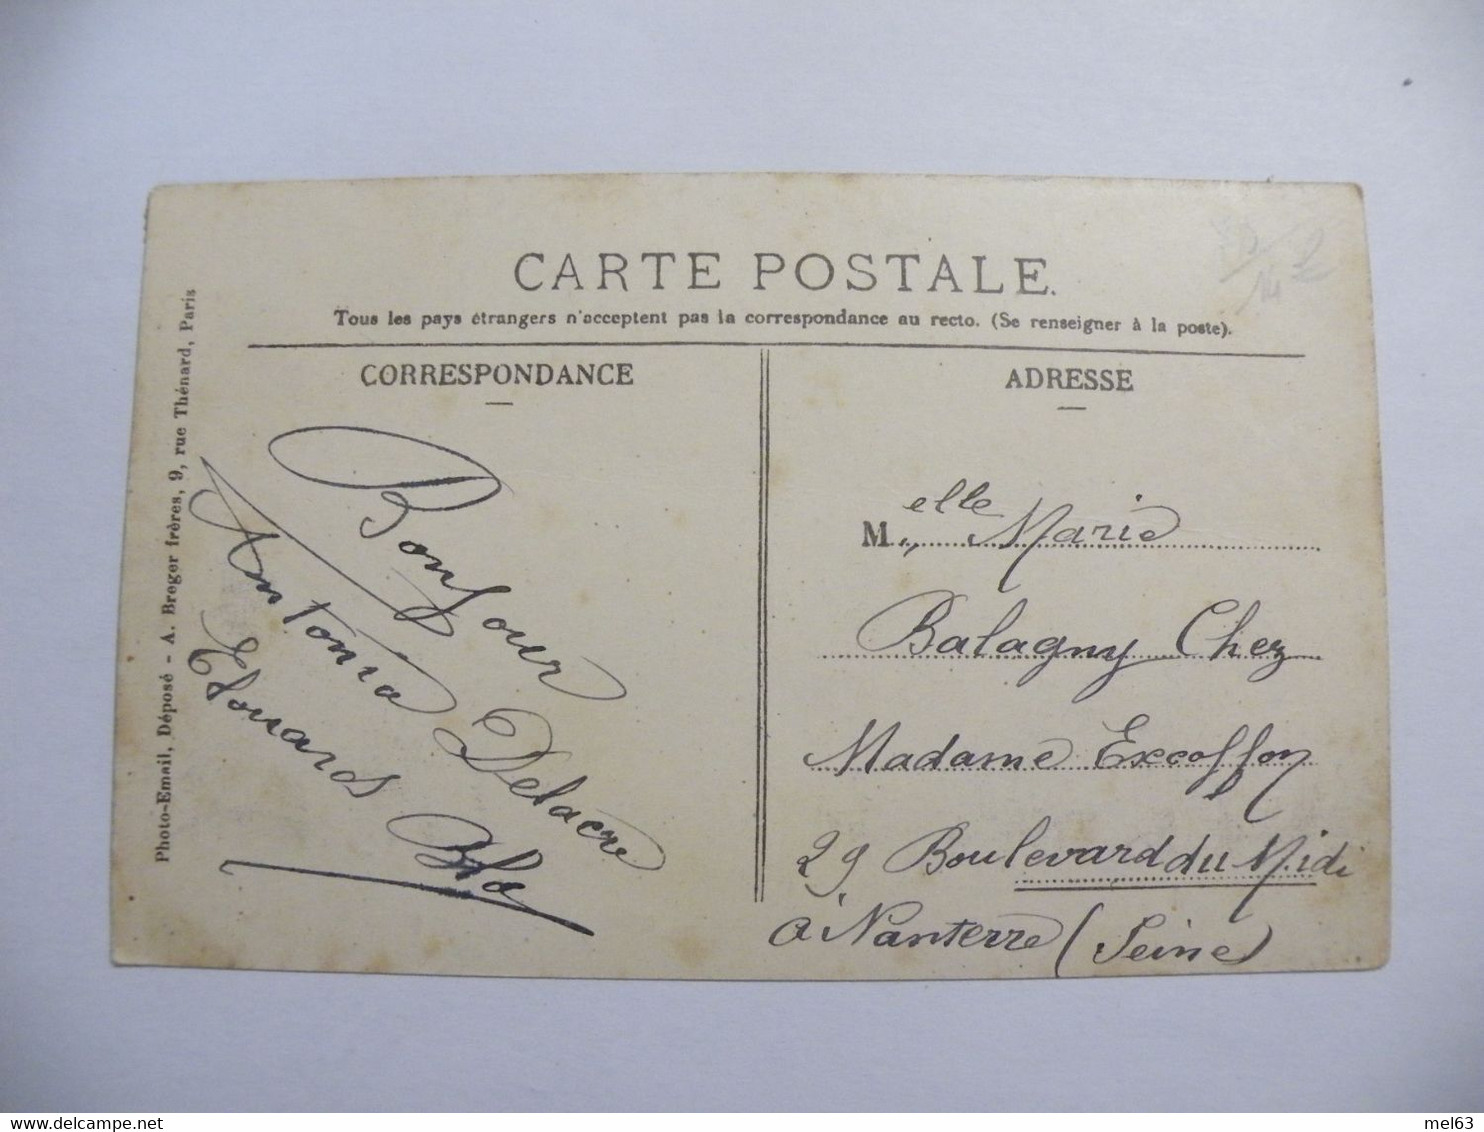 CARTE POSTALE.
Tous les pays étrangers n'acceptent pas la correspondance au recto. (Se renseigner à la poste).
CORRESPONDANCE
Bonjour
Antonia Delacre
Edouard
ADRESSE
Melle Marie
Balagny Chez
Madame Excoffon
29 Boulevard du Midi
à Nanterre (Seine)
Photo-Email, Déposé - A. Breger frères, 9, rue Thénard, Paris
delcampe.net
mel63